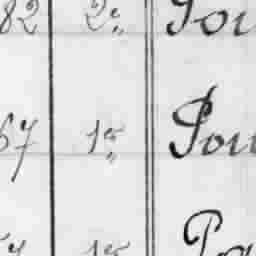 82 2e Pou
67 1er Pou
1er Pa